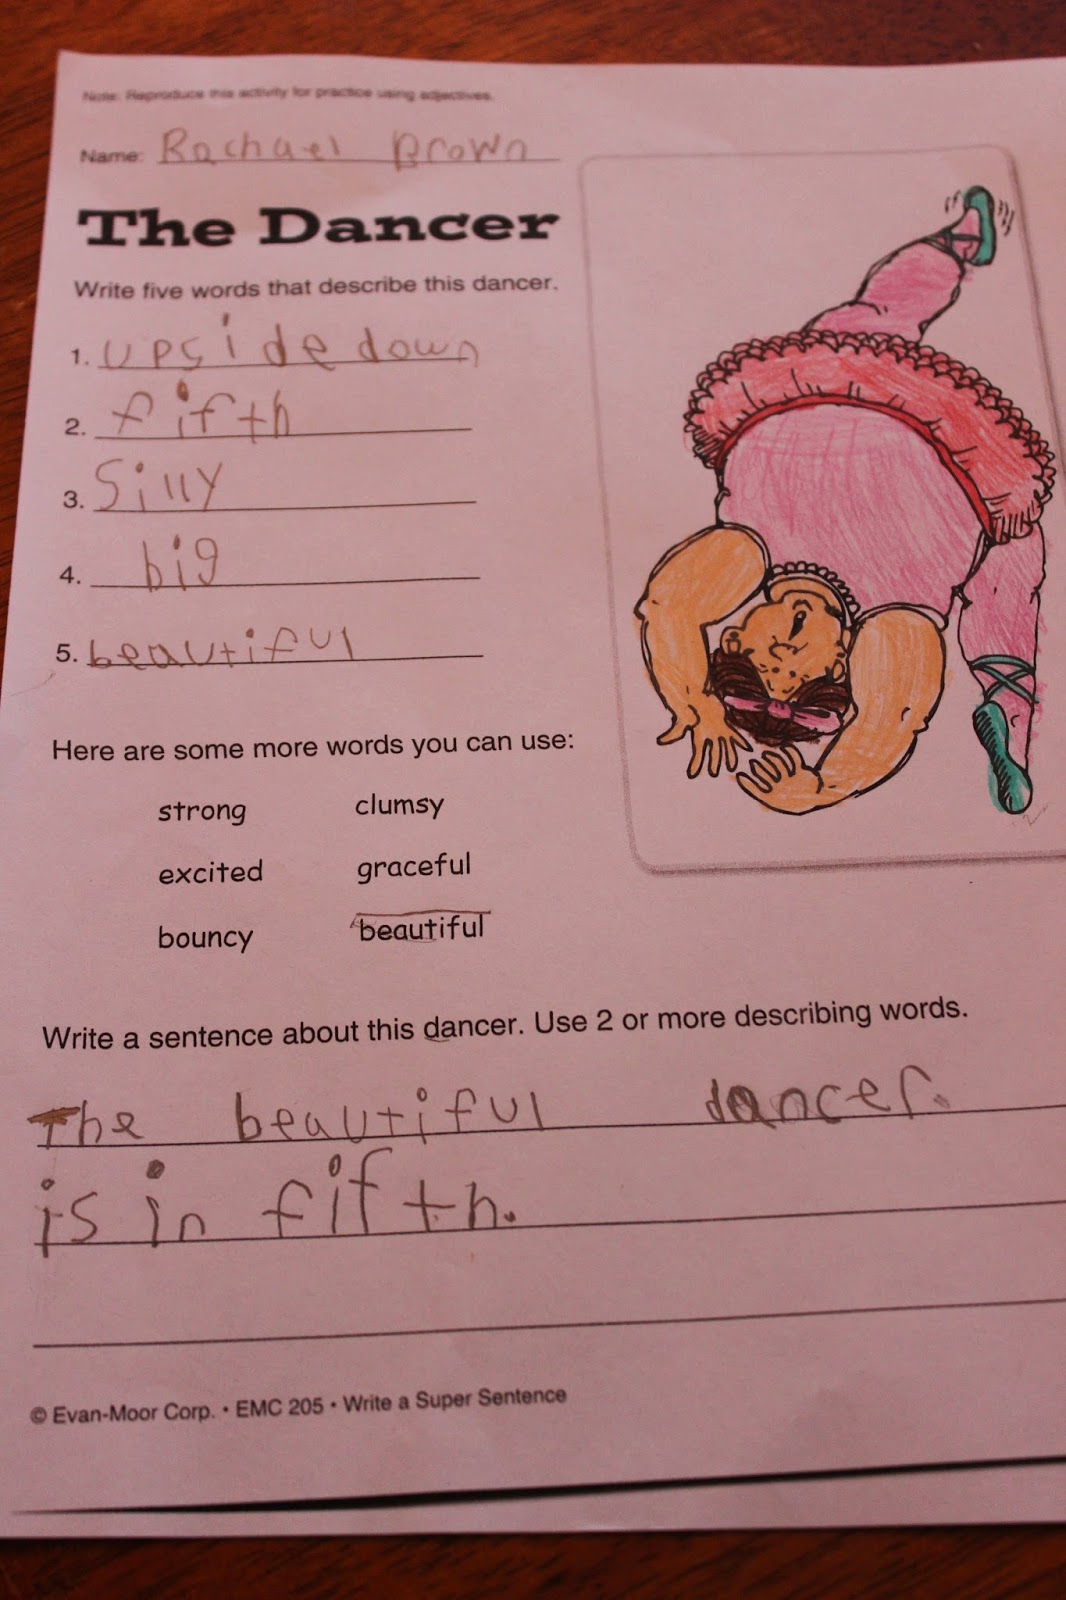 Note: Reproduce this activity for practice using adjectives.
Name: Rachael Brown
The Dancer
Write five words that describe this dancer.
1. upside down
2. fifth
3. Silly
4. big
5. beautiful
Here are some more words you can use:
strong clumsy
excited graceful
bouncy beautiful
Write a sentence about this dancer. Use 2 or more describing words.
The beautiful dancer.
is in fifth.
© Evan-Moor Corp. • EMC 205 • Write a Super Sentence